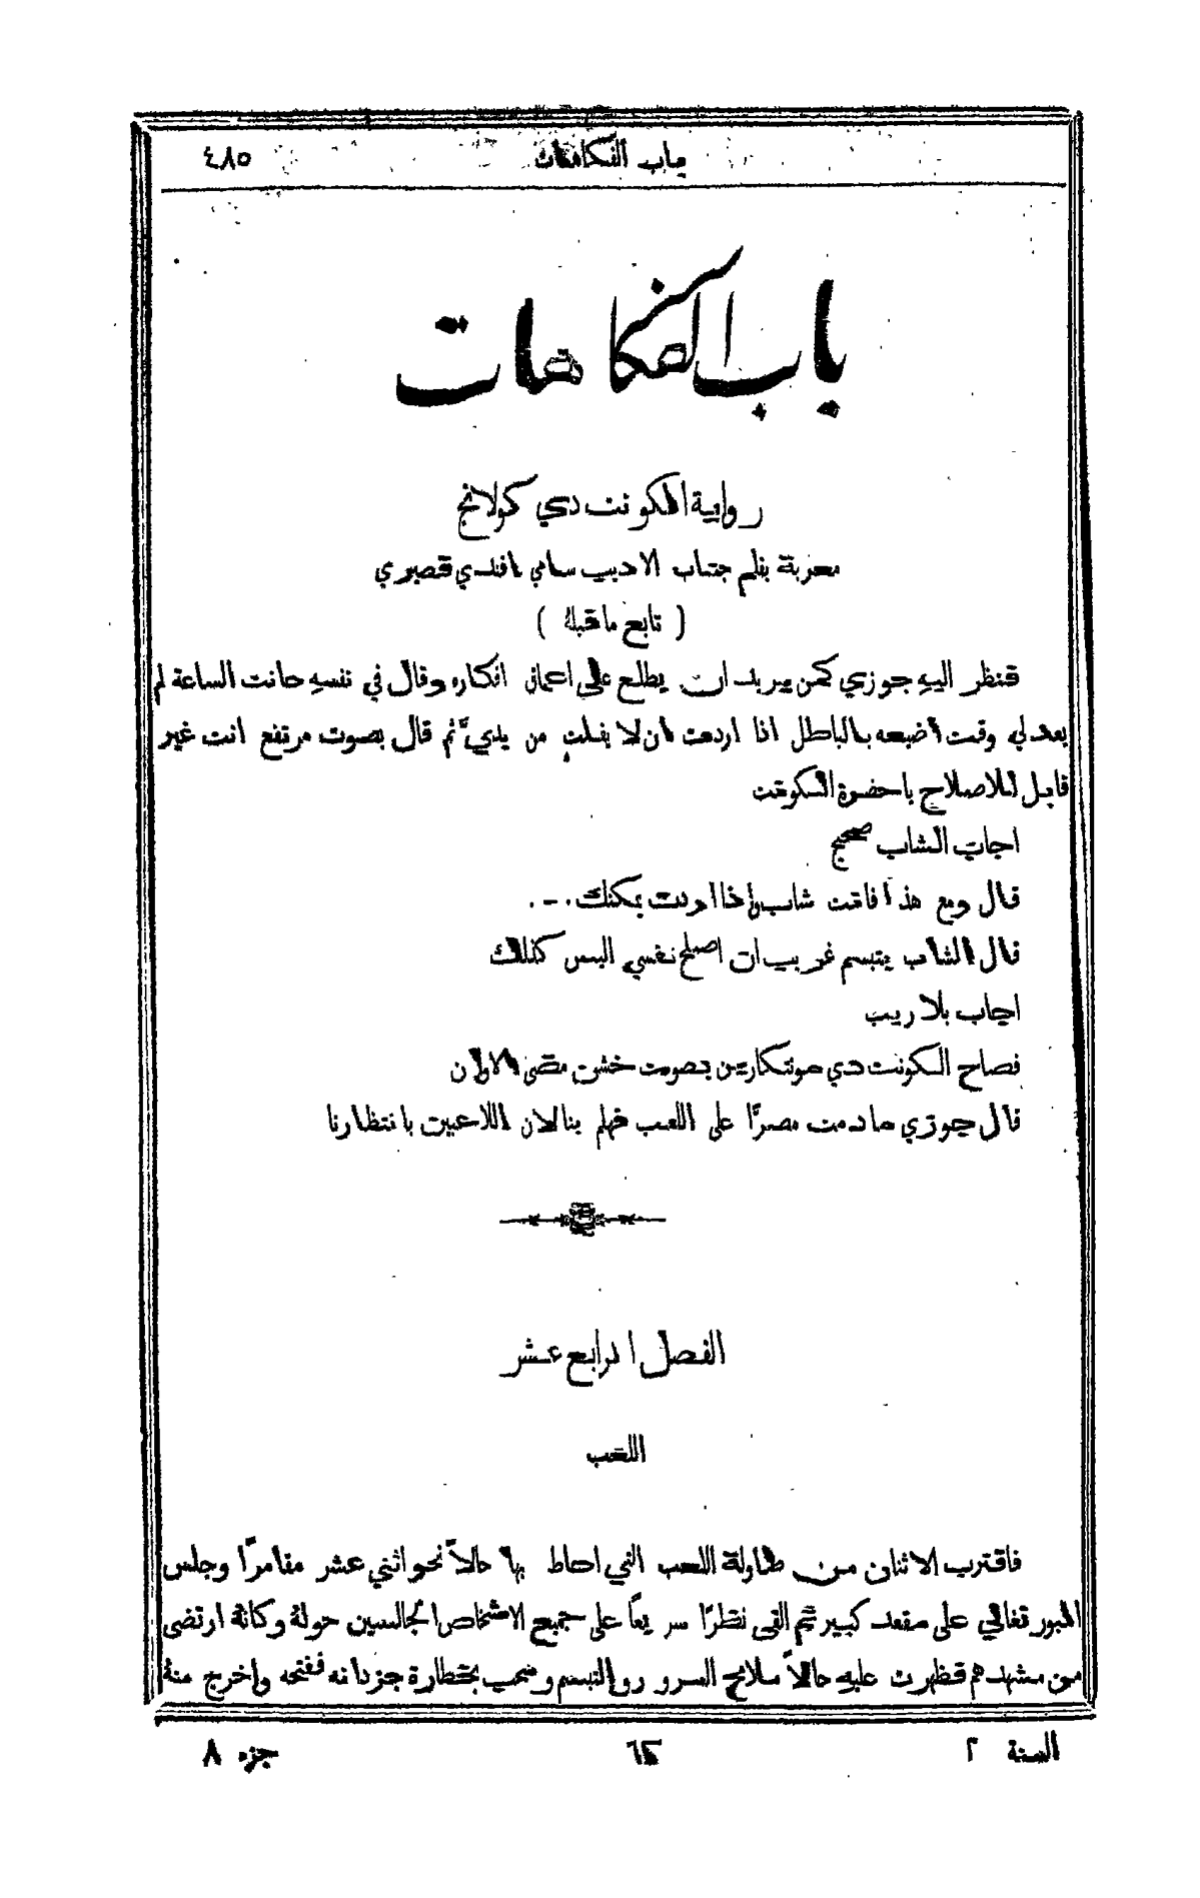 باب الفكاهات ٤٨٥
باب الفكاهات
رواية الكونت دي كولانج
معربة بقلم جناب الاديب سامي افندي قصيري
( تابع ما قبله )
فنظر اليهِ جوزي كمن يريد ان يطلع على اعماق افكاره وقال في نفسهِ حانت الساعة لم
يعد لي وقت اضيعه بالباطل اذا اردت ان لا يفلت من يديَّ ثم قال بصوت مرتفع انت غير
قابل للاصلاح ياحضرة الكونت
اجاب الشاب صحيح
قال ومع هذا فانت شاب واذا اردت يمكنك . - .
قال الشاب يتبسم غريب ان اصلح نفسي اليس كذلك
اجاب بلا ريب
فصاح الكونت دي مونتكارين بصوت خشن مضى الاوان
قال جوزي ما دمت مصرًّا على اللعب فهلم بنا لان اللاعبين بانتظارنا
الفصل الرابع عشر
اللعب
فاقترب الاثنان من طاولة اللعب التي احاط بها حالاً نحو اثني عشر مقامرًا وجلس
على مقعد كبير ثم القى نظرًا سريعًا على جميع الاشخاص الجالسين حولهُ وكانهُ ارتضى
من مشهدهم فظهرت عليهِ حالاً ملامح السرور والتبسم وسحب جزدانه ففتحه واخرج منهُ
السنة ٢ ٦٢ جزء ٨